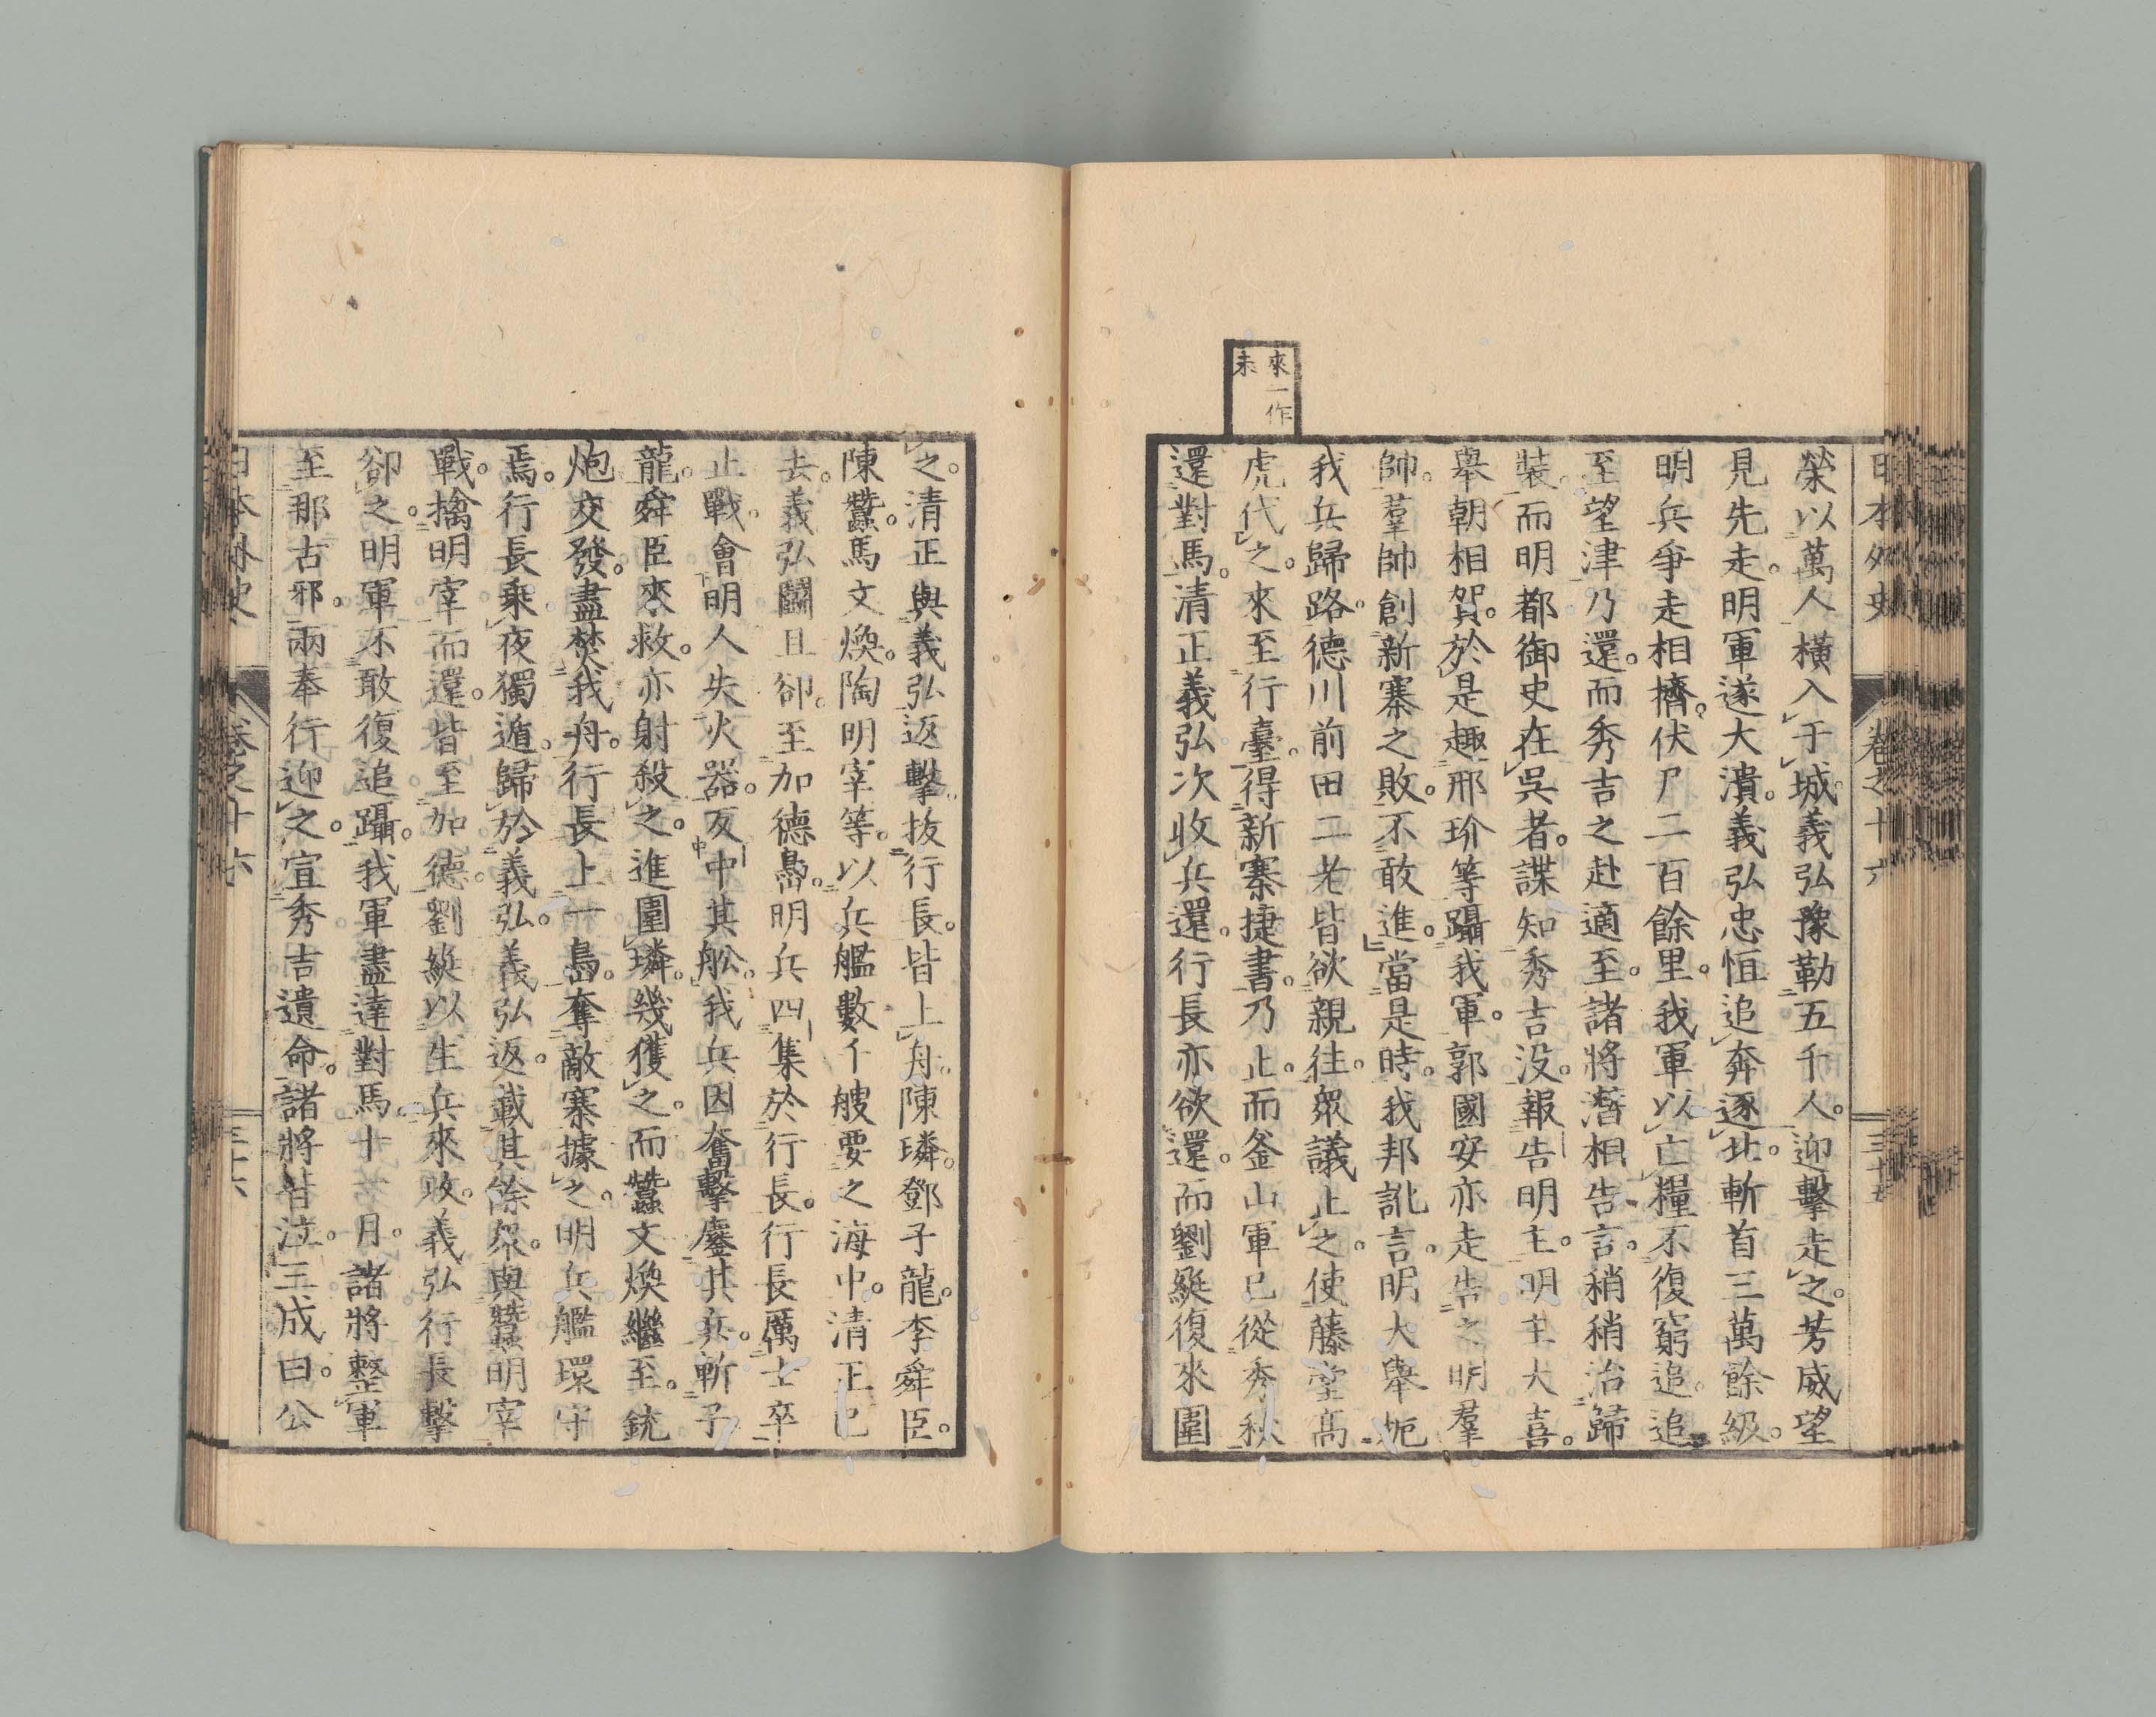 日本外史
卷之十六
三十五
來一作
未
榮以萬人橫入于城。義弘豫勒五千人。迎擊走之。芳威望
見先走。明軍遂大潰。義弘忠恒追奔逐北。斬首三萬餘級。
明兵爭走相擠。伏尸二百餘里。我軍以亡糧不復窮追。追
至望津乃還。而秀吉之赴適至。諸將潛相告言。稍稍治歸
裝。而明都御史在吳者。諜知秀吉沒。報告明主。明主大喜。
舉朝相賀。於是趣邢玠等躡我軍。郭國安亦走告之。明羣
帥。羣帥創新寨之敗。不敢進。當是時。我邦訛言。明大舉扼
我兵歸路。德川前田二老皆欲親往。衆議止之。使藤堂高
虎代之。來至行臺。得新寨捷書。乃止。而釜山軍已從秀秋
還對馬。清正義弘次收兵還。行長亦欲還。而劉綎復來圍
之。清正與義弘返擊拔行長。皆上舟。陳璘。鄧子龍。李舜臣。
陳蠶。馬文煥。陶明宰等。以兵艦數千艘要之海中。清正已
去。義弘鬭且卻。至加德島。明兵四集於行長。行長厲士卒
止戰。會明人失火器。反中其舩。我兵因奮擊鏖其兵。斬子
龍。舜臣來救。亦射殺之。進圍璘。幾獲之。而蠶文煥繼至。銃
炮交發。盡焚我舟。行長上一島。奪敵寨據之。明兵艦環守
焉。行長乘夜獨遁。歸於義弘。義弘返。載其餘衆。與蠶明宰
戰。擒明宰而還。皆至加德。劉綎以生兵來攻。義弘行長擊
卻之。明軍不敢復追躡。我軍盡達對馬。十一月。諸將整軍
至那古邪。兩奉行迎之。宣秀吉遺命。諸將皆泣。三成曰。公
日本外史
卷之十六
三十六